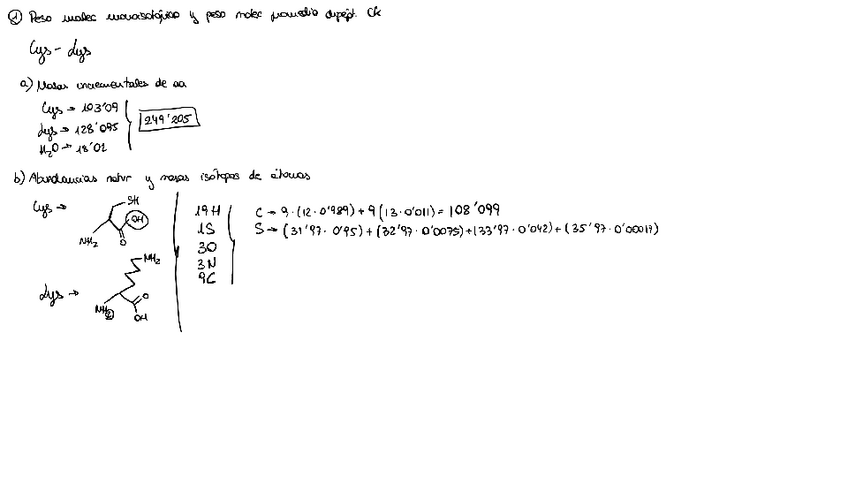 ① Peso molec monoisotópico y peso molec promedio dipépt. CK
Cys - Lys
a) Masas incrementales de aa
Cys → 103'09
Lys → 128'095
H₂O → 18'02
249'205
b) Abundancias natur y masas isótopos de átomos
Cys →
SH
OH
O
NH₂
Lys →
NH₂
O
OH
NH₂
19H
1S
3O
3N
9C
C → 9·(12·0'989) + 9(13·0'011) = 108'099
S → (31'97·0'95) + (32'97·0'0075) + (33'97·0'042) + (35'97·0'00017)